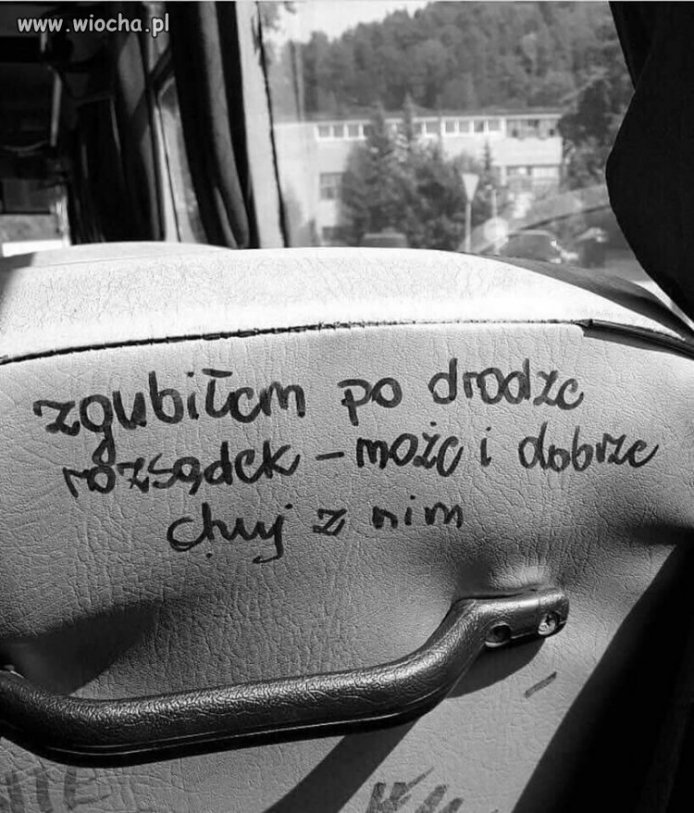 www.wiocha.pl
zgubiłem po drodze
rozsądek - może i dobrze
chuj z nim